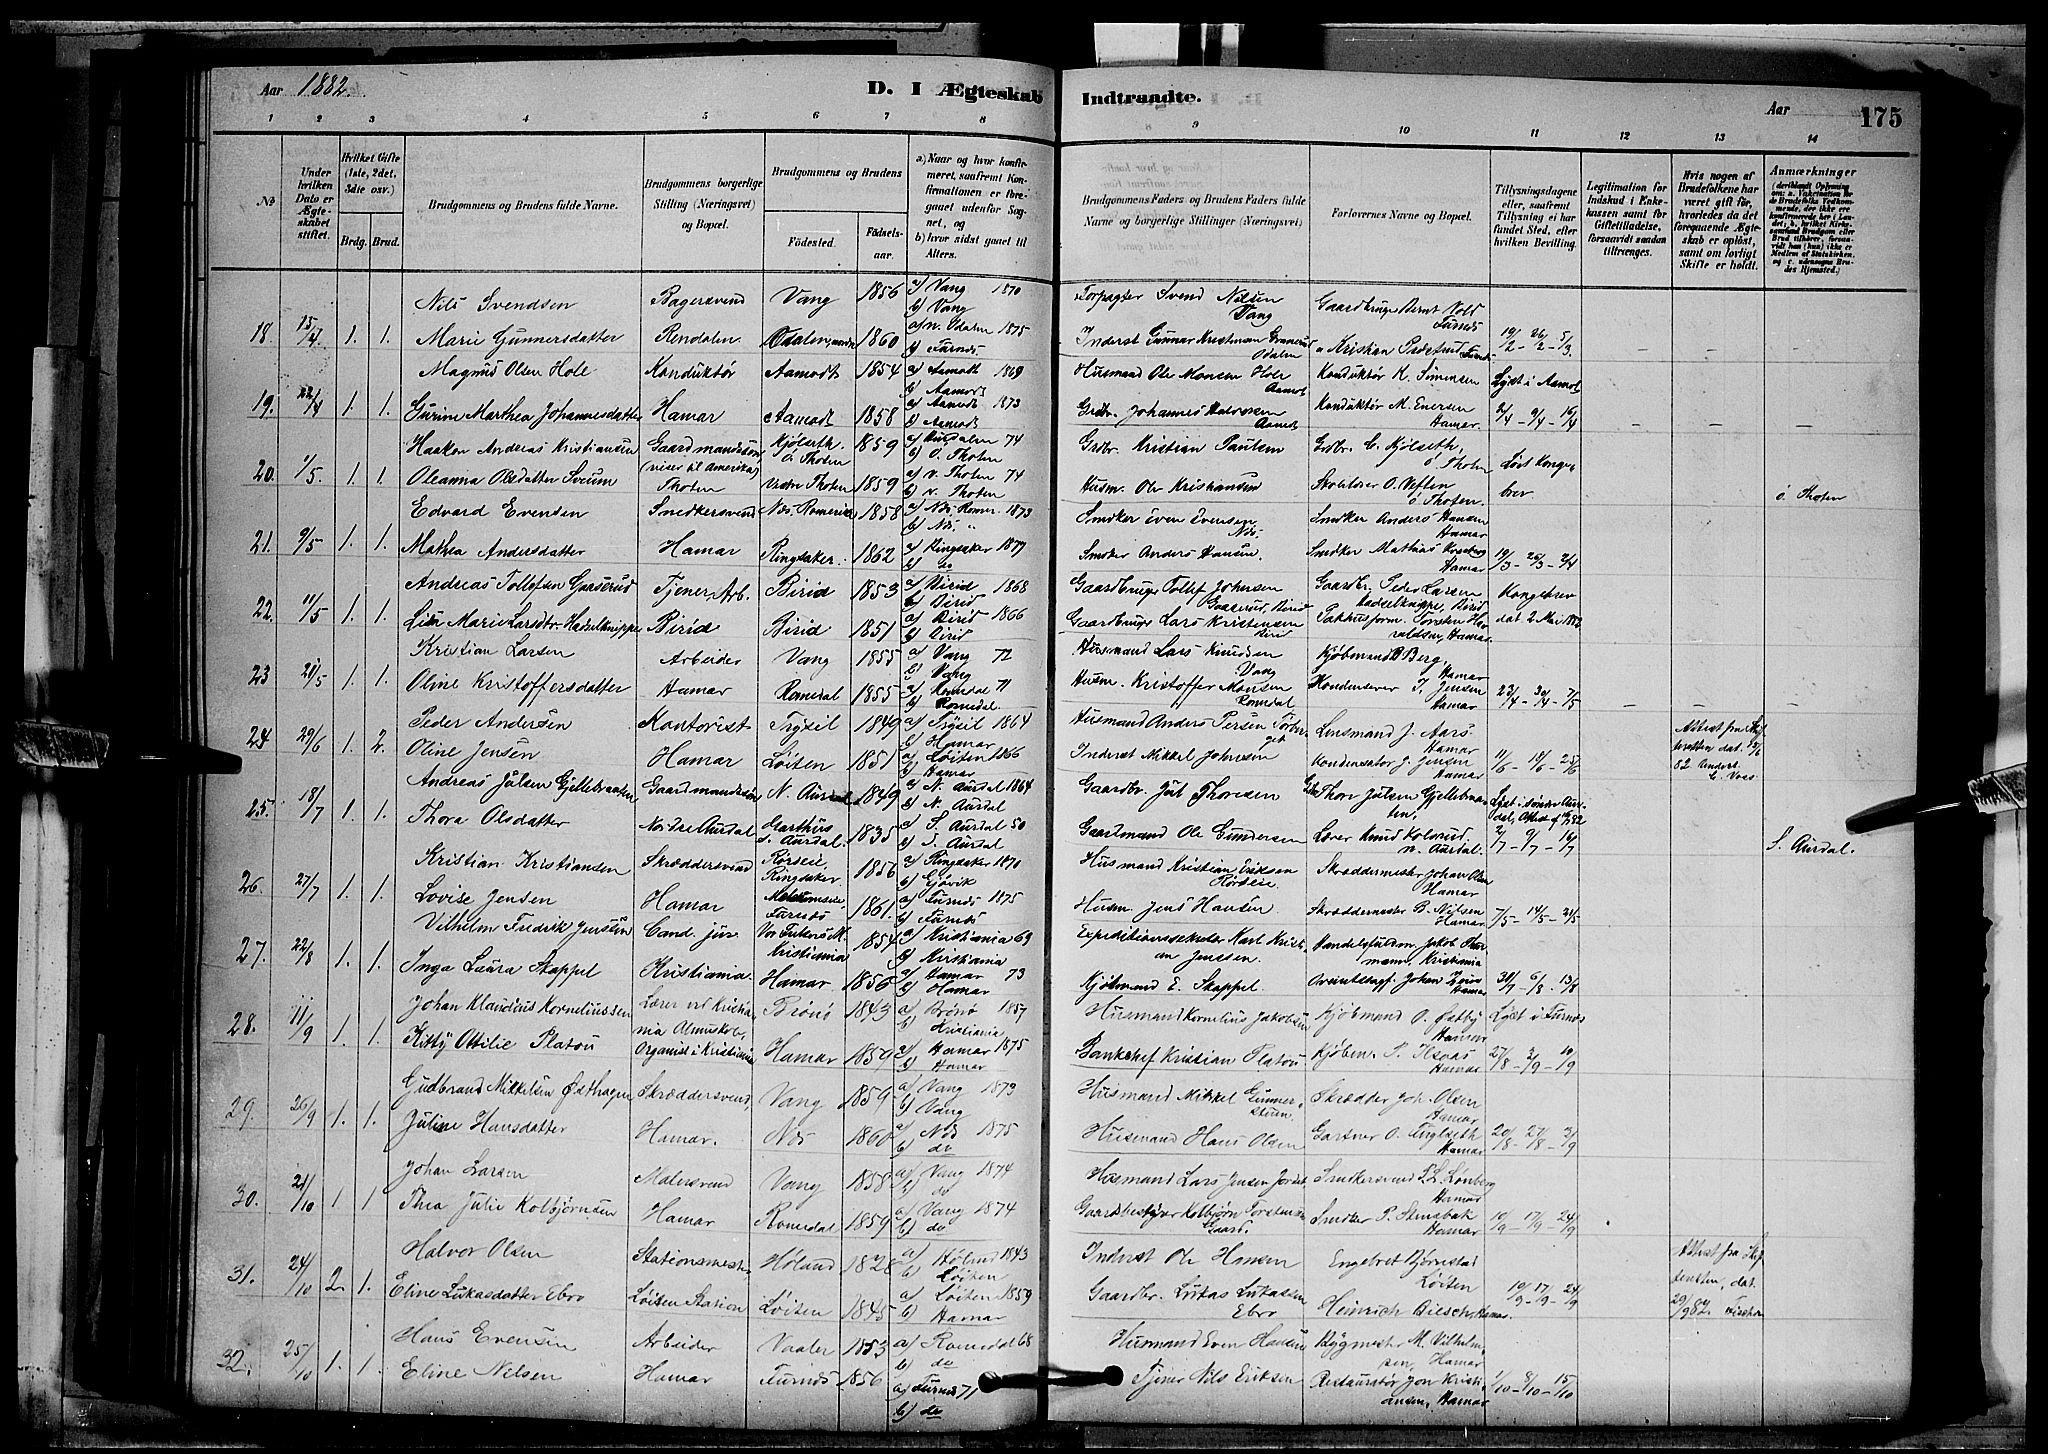 Aar 1882.
D. I Ægteskab Indtraadte.
Aar 175
1 2 3 4 5 6 7 8 9 10 11 12 13 14
No
Under hvilken Dato er Ægteskabet stiftet.
Hvilket Gifte (1ste, 2det, 3die osv.)
Brdg. Brud.
Brudgommens og Brudens fulde Navne.
Brudgommens borgerlige Stilling (Næringsvei) og Bopæl.
Brudgommens og Brudens
Fødested. Fødselsaar.
a) Naar og hvor konfirmeret, saafremt Konfirmationen er foregaaet udenfor Sognet, og
b) hvor sidst gaaet til Alters.
Brudgommens Faders og Brudens Faders fulde Navne og borgerlige Stillinger (Næringsvei)
Forlovernes Navne og Bopæl.
Tillysningsdagene eller, saafremt Tillysning ei har fundet Sted, efter hvilken Bevilling.
Legitimation for Indskud i Enkekassen samt for Giftetilladelse, forsaavidt saadan tiltrænges.
Hvis nogen af Brudefolkene har været gift før, hvorledes da det foregaaende Ægteskab er opløst, samt om lovligt Skifte er holdt.
Anmærkninger
Nils Svendsen Bagersvend Vang 1856 a) Vang 1870 b) Vang Forpagter Svend Nilsen Vang
18. 15/4 1. 1. Marie Gunnersdatter Rendalen Odalen 1860 a) n. Odalen 1875 b) Furnæs Inderst Gunnar Odalen 19/2 - 26/2 - 5/3
Magnus Olsen Hole Konduktør Aamodt 1854 a) Aamodt 1869 b) Aamodt Husmand Ole Monsen Hole Aamodt Konduktør K. Simensen Lyst i Aamodt
19. 22/4 1. 1. Gurine Marthea Johannesdatter Hamar Aamodt 1858 a) Aamodt 1873 b) Aamodt Grdbr. Johannes Halvorsen Aamodt Konduktør M. Enersen Hamar 2/4 - 9/4 - 16/4
Haaken Andreas Kristiansen Gaardmandssøn (reiser til Amerika) Kjølseth ö Thoten 1859 74 b) ö. Thoten Grdbr. Kristian Paulsen Grdbr. C. Kjölseth, ö Thoten Løst Kongebrev
20. 1/5. 1. 1. Oleanna Olsdatter Sveum Thoten Vestre Thoten 1859 a) v. Thoten 74 b) v. Thoten Husm. Ole Kristiansen ö Thoten. ö. Thoten
Edvard Evensen Snedkersvend Næs. Romerike 1858 a) Næs Romer. 1873 b) Næs " Smedker Even Evensen Næs. Snedker Anders Hansen Hamar
21. 9/5 1. 1. Mathea Andersdatter Hamar Ringsaker. 1862 a) Ringsaker 1877 b) do Snedker Anders Hansen. Snedker Mathias Hamar 19/3 - 26/3 - 2/4
Andreas Tollefsen Gaaserud Tjener, Arb. Birid 1853 a) Birid 1868 b) Birid Gaardbruger Tollef Johnsen Gaaserud, Birid Gaardbr. Peder Larsen Hadselknippe, Birid Kongebrev
22. 11/5 1. 1. Line Marie Larsdtr. Hadselknippe Birid Birid 1851 a) Birid 1866 b) Birid Gaardbruger Lars Kristensen Birid Pakhusform. Torsten Haraldsen, Hamar dat 2 Mai 1882
Kristian Larsen Arbeider Vang 1855 a) Vang 72 b) Vang Husmand Lars Knudsen Vang Kjøbmand Berg, Hamar
23 21/5 1. 1. Oline Kristoffersdatter Hamar Romedal 1855 a) Romedal 71 b) Romedal. Husm. Kristoffer Monsen Romedal J. Jensen Hamar 23/4 - 30/4 - 7/5
Peder Andersen Kontorist Trysil 1849 a) Trysil 1864 b) Hamar Husmand Anders Persen Torberget Lensmand J. Aars Hamar
24 29/6 1. 2. Oline Jensen Hamar Løiten 1851 a) Løiten 1866 b) Hamar Inderst Mikkel Johnsen J. Jensen Hamar 11/6 - 18/6 - 25/6
Andreas Julsen Gjellebraaten Gaardmandssøn N. Aurdal 1849 a) N. Aurdal 1864 b) N. Aurdal Gaardbr. Jul Thoresen Thore Julsen Gjellebraaten,
25. 18/7 1. 1. Thora Olsdatter Nordre Aurdal Garthus S. Aurdal. 1835 a) S. Aurdal 50 b) S. Aurdal Gaardmand Ole Gundersen Lærer Knud Kolsrud, n. Aurdal. 2/7 - 9/7 - 16/7 S. Aurdal.
Kristian Kristiansen Skræddersvend Rørseie Ringsaker. 1856 a) Ringsaker 1870 b) Gjøvik Husmand Kristian Eriksen Rørseie Skræddermester Johan Olsen Hamar
26. 27/7 1. 1. Lovise Jensen Hamar Furnæs 1861. a) Furnæs 1875 b) Furnæs Husm. Jens Hansen. Skræddermester B. Nilsen Hamar. 7/5 - 14/5 - 21/5
Vilhelm Fredrik Jenssen Cand. jur. Vor Frelsers M. Kristiania 1854 a) Kristiania 69 b) Kristiania Expeditionssekretær Karl Kristian Jenssen. Jakob Kristiania
27. 22/8 1. 1. Inga Laura Skappel Kristiania. Hamar 1856 a) Hamar 73 b) Hamar Kjøbmand E. Skappel. Johan Hamar 30/7 - 6/8 - 13/8
Johan Klaudius Korneliussen Lærer ved Kristiania Almuskole, Brønø 1843 a) Brønø 1857 b) Kristiania Husmand Kornelius Jakobsen Kjøbmand O. Østby Hamar Lyst i Furnæs
28. 11/9 1. 1. Kitty Ottilie Platou Organist i Kristiania Hamar 1859 a) Hamar 1875 b) Hamar Bankchef Kristian Platou Kjøbm. P. Hamar 27/8 - 3/9 - 10/9
Gudbrand Mikkelsen Østhagen Skræddersvend, Vang 1859 a) Vang 1873 b) Vang Husmand Mikkel Gunnerstuen. Skrædder Joh. Olsen Hamar
29. 26/9 1. 1. Juline Hansdatter Hamar. Næs 1860 a) Næs 1875 b) do Husmand Hans Olsen Gartner O. Fuglseth Hamar 20/8 - 27/8 - 3/9
Johan Larsen Malersvend Vang 1858 a) Vang 1874 b) do Husmand Lars Jensen Jordet Snedkersvend P. L. Lønberg Hamar
30. 21/10 1 1 Thea Julie Kolbjørnsen Hamar Romedal 1859 a) Vang 1874 b) do Gaardbestyrer Kolbjørn Torstensen Gaard. Snedker P. Stensbak Hamar 10/9 - 17/9 - 24/9
Halvor Olsen Stationsmester Høland 1828 a) Høland 1843 b) Løiten Inderst Ole Hansen Engebret Bjørnstad Løiten
31. 24/10 2. 1. Eline Lukasdatter Ebro Løiten Station Løiten 1845 a) Løiten 1859 b) Hamar Gaardbr. Lukas Lukassen Ebro Heinrich Bilsch, Hamar. 10/9 - 17/9 - 24/9
Hans Evensen Arbeider Vaaler 1853 a) Romedal 68 b) do Husmand Even Hansen Bygmester M. Vilhelmsen, Hamar
32. 25/10 1. 1. Eline Nelsen Hamar Furnæs 1856 a) Furnæs 71 b) do Tjener Nils Eriksen Restauratør Jon Kristiansen, Hamar 1/10 - 8/10 - 15/10